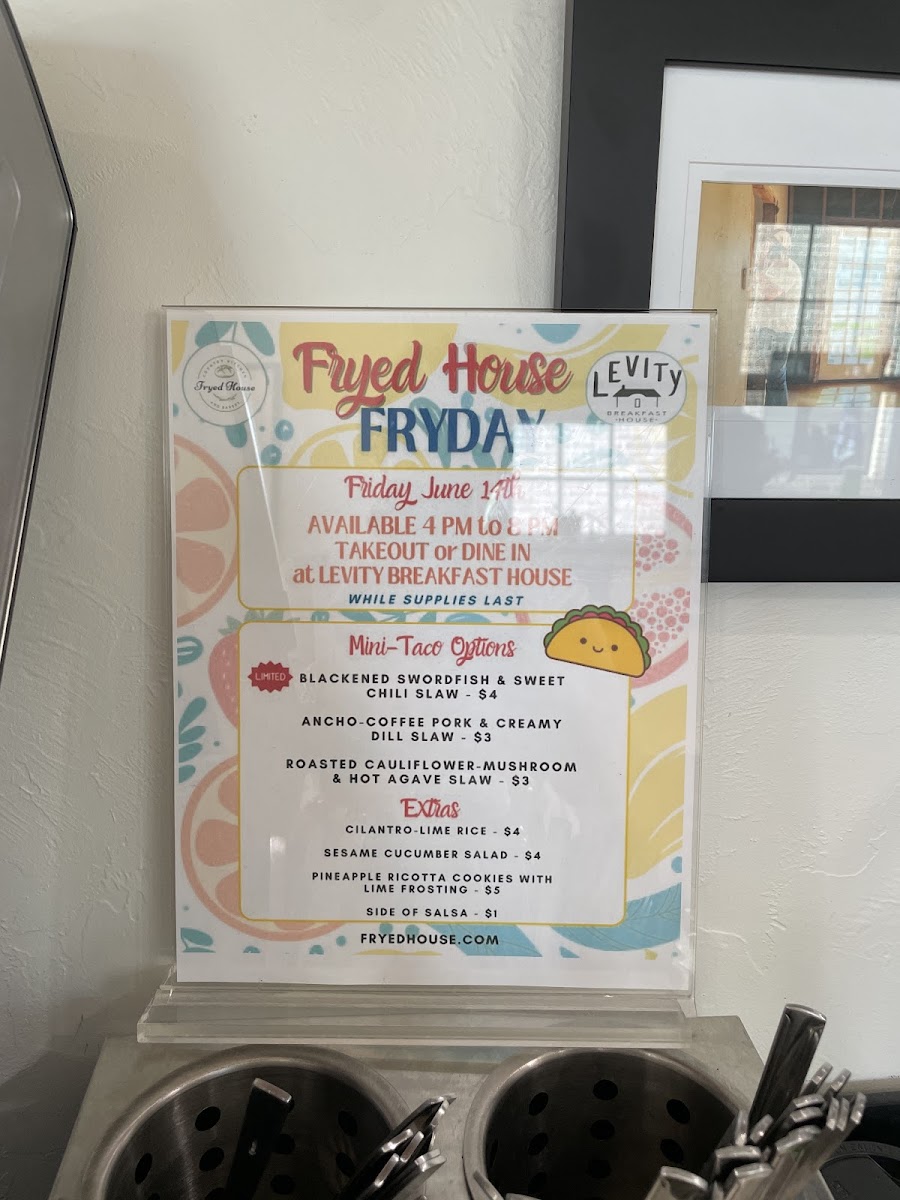 Fryed House
FRYDAY
Fryed House
LEVITY
BREAKFAST
HOUSE
Friday June 14th
AVAILABLE 4 PM to 8 PM
TAKEOUT or DINE IN
at LEVITY BREAKFAST HOUSE
WHILE SUPPLIES LAST
Mini-Taco Options
LIMITED
BLACKENED SWORDFISH & SWEET
CHILI SLAW - $4
ANCHO-COFFEE PORK & CREAMY
DILL SLAW - $3
ROASTED CAULIFLOWER-MUSHROOM
& HOT AGAVE SLAW - $3
Extras
CILANTRO-LIME RICE - $4
SESAME CUCUMBER SALAD - $4
PINEAPPLE RICOTTA COOKIES WITH
LIME FROSTING - $5
SIDE OF SALSA - $1
FRYEDHOUSE.COM